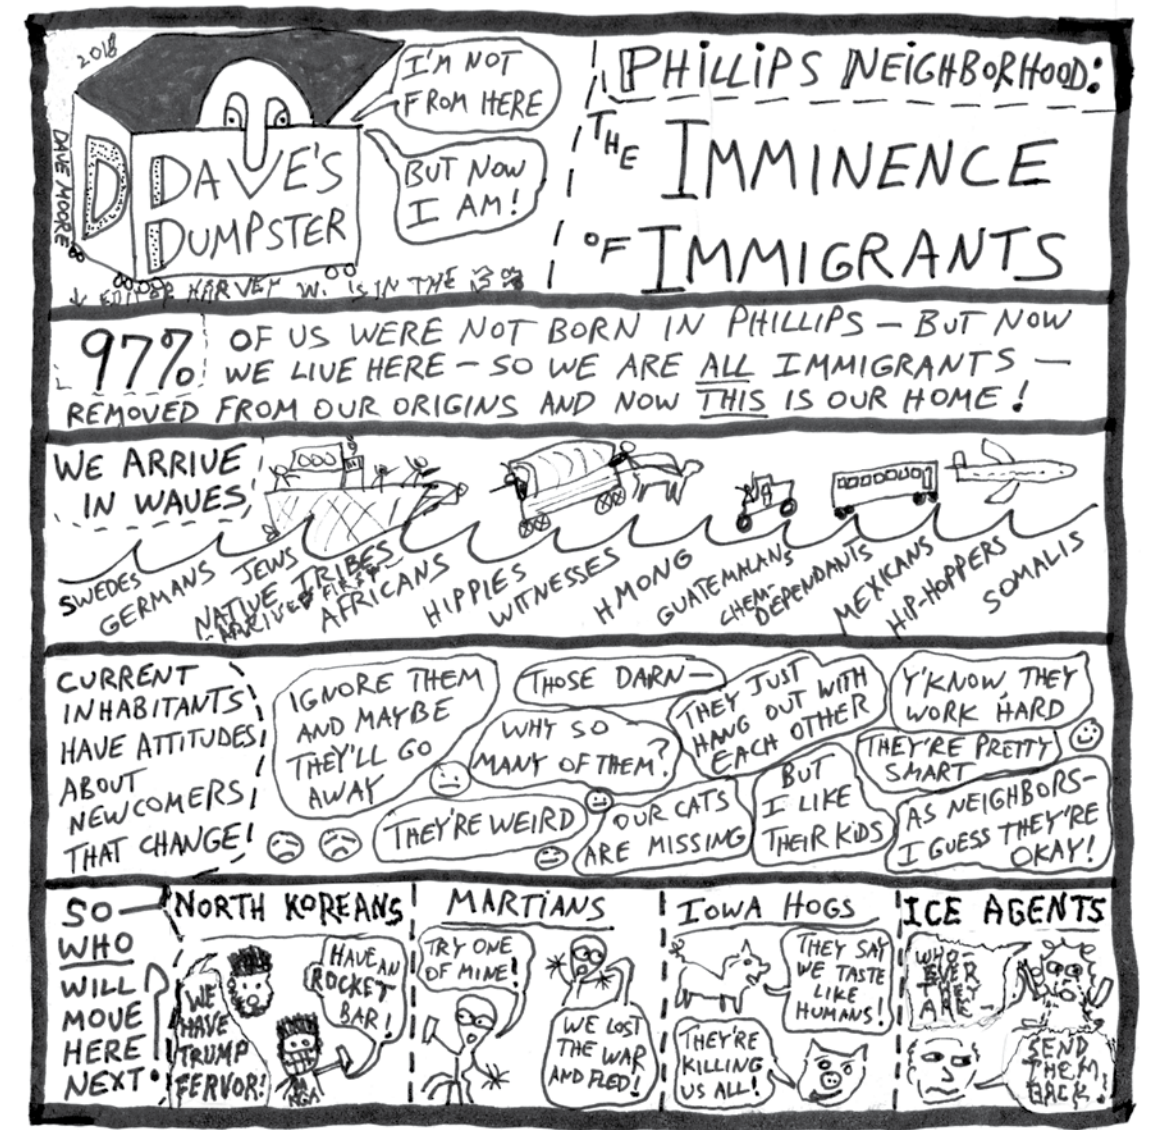 2018
DAVE MOORE
D
DAVE'S
DUMPSTER
I'M NOT
FROM HERE
BUT NOW
I AM!
EDITOR HARVEY W. IS IN THE
PHILLIPS NEIGHBORHOOD:
THE IMMINENCE
OF IMMIGRANTS
97% OF US WERE NOT BORN IN PHILLIPS — BUT NOW
WE LIVE HERE — SO WE ARE ALL IMMIGRANTS —
REMOVED FROM OUR ORIGINS AND NOW THIS IS OUR HOME!
WE ARRIVE
IN WAVES
SWEDES
GERMANS
JEWS
NATIVE TRIBES
ARRIVED FIRST
AFRICANS
HIPPIES
WITNESSES
HMONG
GUATEMALANS
CHEM-
DEPENDANTS
MEXICANS
HIP-HOPPERS
SOMALIS
CURRENT
INHABITANTS
HAVE ATTITUDES
ABOUT
NEWCOMERS
THAT CHANGE!
IGNORE THEM
AND MAYBE
THEY'LL GO
AWAY
THOSE DARN—
WHY SO
MANY OF THEM?
THEY'RE WEIRD
THEY JUST
HANG OUT WITH
EACH OTHER
OUR CATS
ARE MISSING
BUT
I LIKE
THEIR KIDS
Y'KNOW, THEY
WORK HARD
THEY'RE PRETTY
SMART
AS NEIGHBORS-
I GUESS THEY'RE
OKAY!
SO—
WHO
WILL
MOVE
HERE
NEXT
NORTH KOREANS
WE
HAVE
TRUMP
FERVOR!
HAVE AN
ROCKET
BAR!
MAGA
MARTIANS
TRY ONE
OF MINE!
WE LOST
THE WAR
AND FLED!
IOWA HOGS
THEY SAY
WE TASTE
LIKE
HUMANS!
THEY'RE
KILLING
US ALL!
ICE AGENTS
WHO-
EVER
THEY
ARE—
SEND
THEM
BACK!